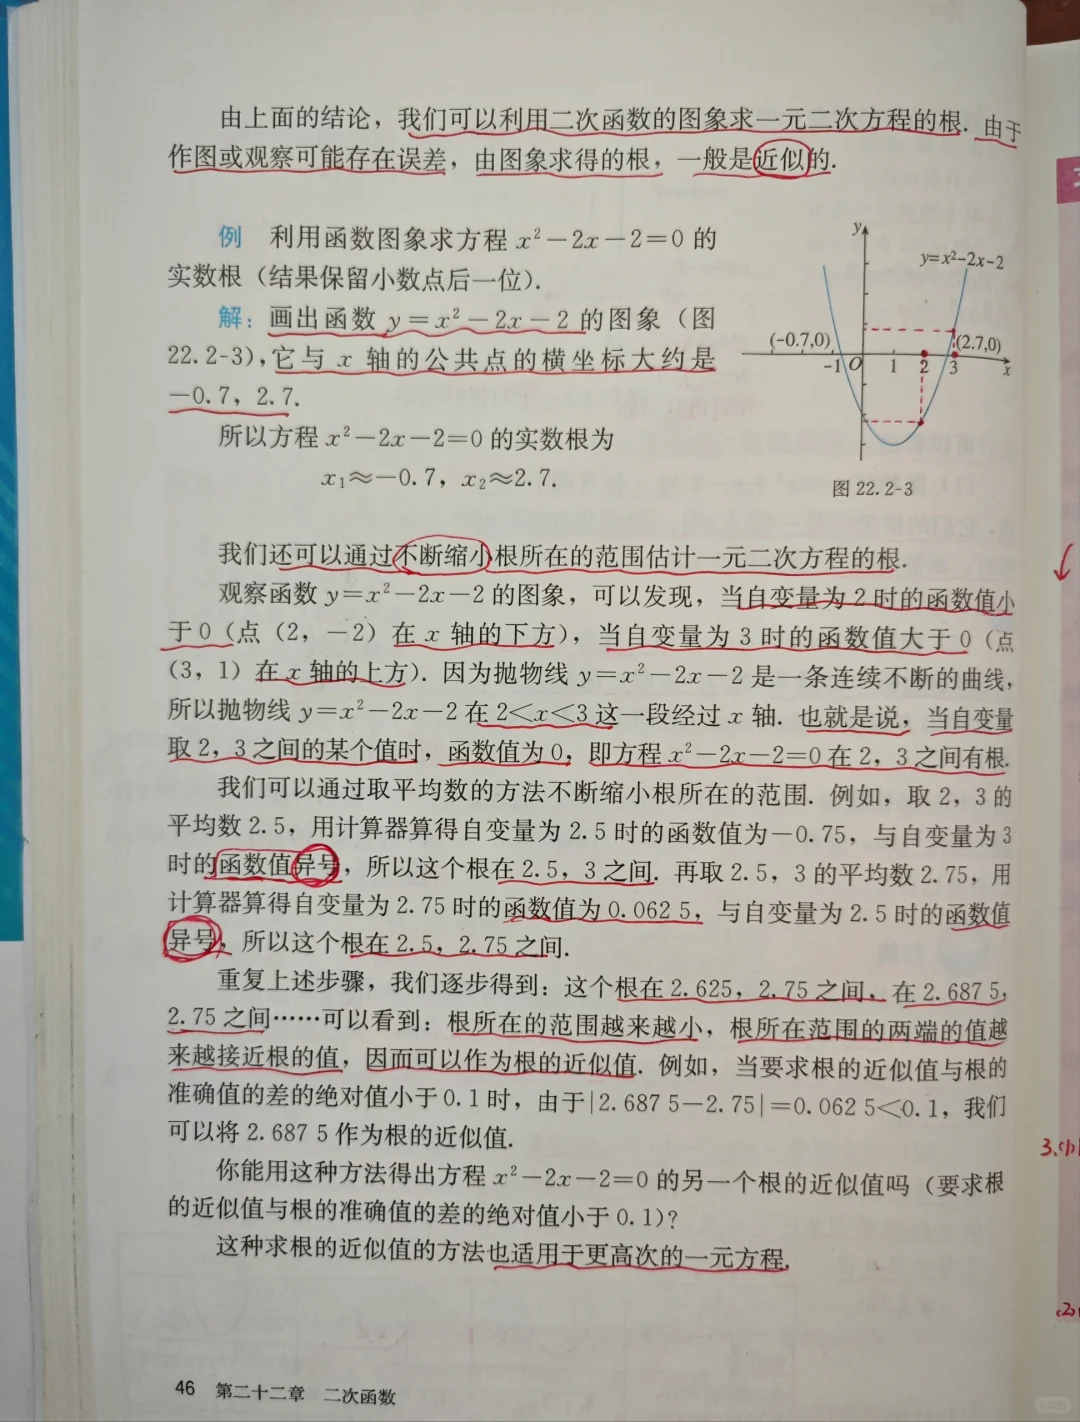 由上面的结论，我们可以利用二次函数的图象求一元二次方程的根. 由于
作图或观察可能存在误差，由图象求得的根，一般是近似的.
例 利用函数图象求方程 x²−2x−2=0 的
实数根（结果保留小数点后一位）.
解：画出函数 y=x²−2x−2 的图象（图
22.2-3），它与 x 轴的公共点的横坐标大约是
−0.7，2.7.
所以方程 x²−2x−2=0 的实数根为
x₁≈−0.7，x₂≈2.7.
y
y=x²−2x−2
(−0.7,0)
(2.7,0)
−1 O 1 2 3 x
图 22.2-3
我们还可以通过不断缩小根所在的范围估计一元二次方程的根.
观察函数 y=x²−2x−2 的图象，可以发现，当自变量为 2 时的函数值小
于 0（点（2，−2）在 x 轴的下方），当自变量为 3 时的函数值大于 0（点
（3，1）在 x 轴的上方）. 因为抛物线 y=x²−2x−2 是一条连续不断的曲线，
所以抛物线 y=x²−2x−2 在 2<x<3 这一段经过 x 轴. 也就是说，当自变量
取 2，3 之间的某个值时，函数值为 0，即方程 x²−2x−2=0 在 2，3 之间有根.
我们可以通过取平均数的方法不断缩小根所在的范围. 例如，取 2，3 的
平均数 2.5，用计算器算得自变量为 2.5 时的函数值为−0.75，与自变量为 3
时的函数值异号，所以这个根在 2.5，3 之间. 再取 2.5，3 的平均数 2.75，用
计算器算得自变量为 2.75 时的函数值为 0.062 5，与自变量为 2.5 时的函数值
异号，所以这个根在 2.5，2.75 之间.
重复上述步骤，我们逐步得到：这个根在 2.625，2.75 之间，在 2.687 5，
2.75 之间……可以看到：根所在的范围越来越小，根所在范围的两端的值越
来越接近根的值，因而可以作为根的近似值. 例如，当要求根的近似值与根的
准确值的差的绝对值小于 0.1 时，由于|2.687 5−2.75|=0.062 5<0.1，我们
可以将 2.687 5 作为根的近似值.
你能用这种方法得出方程 x²−2x−2=0 的另一个根的近似值吗（要求根
的近似值与根的准确值的差的绝对值小于 0.1）？
这种求根的近似值的方法也适用于更高次的一元方程.
46 第二十二章 二次函数